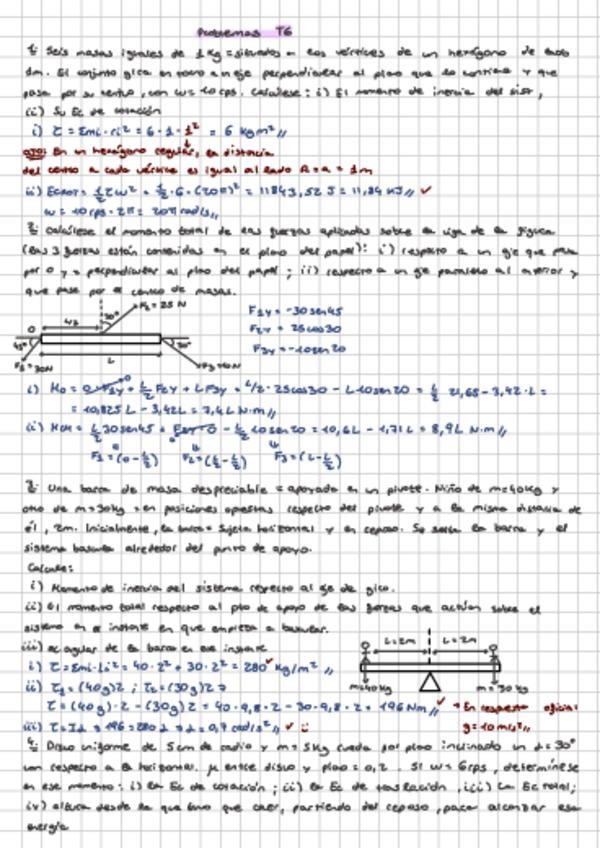 Problemas T6
1: Seis masas iguales de 1 Kg = situados en los vértices de un hexágono de lado
1m. El conjunto gira en torno a un eje perpendicular al plano que lo contiene y que
pasa por su centro, con w = 10 rps. Calcúlese: i) El momento de inercia del sist,
(ii) Su Ec de rotación
i) I = Σmi·ri² = 6·1·1² = 6 Kgm²//
OJO: En un hexágono regular, la distancia
del centro a cada vértice es igual al lado R=a=1m
ii) Ecrot = ½Iw² = ½·6·(20π)² = 11843,52 J = 11,84 KJ// ✓
w = 10rps·2π = 20π rad/s//
2: Calcúlese el momento total de las fuerzas aplicadas sobre la viga de la figura
(las 3 fuerzas están contenidas en el plano del papel): i) respecto a un eje que pasa
por O y = perpendicular al plano del papel; ii) respecto a un eje paralelo al anterior y
que pase por el centro de masas.
F2 = 25N
30°
L/2
O
45°
30°
L
F1 = 30N
F3 = 10N
F1y = -30sen45
F2y = 25cos30
F3y = -10sen20
i) Mo = 0·F1y + L/2 F2y + L F3y = L/2·25cos30 - L·10sen20 = L/2 21,65 - 3,42·L =
= 10,825L - 3,42L = 7,4L N·m//
(ii) MCM = L/2 30sen45 + F2y·0 - L/2 10sen20 = 10,6L - 1,71L = 8,9L N·m//
F1 = (0-L/2) F2 = (L/2-L/2) F3 = (L-L/2)
3: Una barra de masa despreciable = apoyada en un pivote. Niño de m=40kg y
otro de m=30kg = en posiciones opuestas respecto del pivote y a la misma distancia de
él, 2m. Inicialmente, la barra = sujeta horizontal y en reposo. Se suelta la barra y el
sistema bascula alrededor del punto de apoyo.
Calcule:
i) Momento de inercia del sistema respecto al eje de giro.
(ii) El momento total respecto al pto de apoyo de las fuerzas que actúan sobre el
sistema en el instante en que empieza a bascular.
iii) ac angular de la barra en ese instante
L=2m L=2m
m=40kg m=30kg
i) I = Σmi·Li² = 40·2² + 30·2² = 280 ✓ Kg/m²//
ii) τ1 = (40g)2 ; τ2 = (30g)2 →
τ = (40g)·2 - (30g)2 = 40·9,8·2 - 30·9,8·2 = 196Nm// ✓
→ En respuesta oficial
g=10m/s²//
iii) τ = Iα → 196 = 280α → α = 0,7 rad/s²// ✓
4: Disco uniforme de 5cm de radio y m=5kg rueda por plano inclinado un α=30°
con respecto a la horizontal. μ entre disco y plano = 0,2. Si w = 6rps, determínese
en ese momento: i) la Ec de rotación; ii) la Ec de traslación, iii) La Ec total;
iv) altura desde la que tuvo que caer, partiendo del reposo, para alcanzar esa
energía